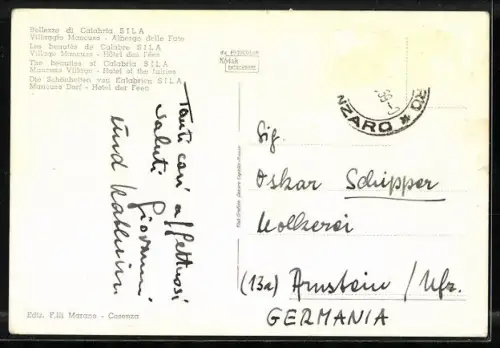 Bellezze di Calabria SILA
Villaggio Mancuso - Albergo delle Fate
Les beautés de Calabre SILA
Village Mancuso - Hôtel des Fées
The beauties of Calabria SILA
Mancuso Village - Hotel of the fairies
Die Schönheiten von Kalabrien SILA
Mancuso Dorf - Hotel der Feen
Kodak
NZARO * 
Tanti cari affettuosi
saluti Giovanni
und Kathrin
Sig.
Oskar Schipper
Molkerei
(13a) Arnstein / Ufr.
GERMANIA
Ediz. F.lli Marano - Cosenza